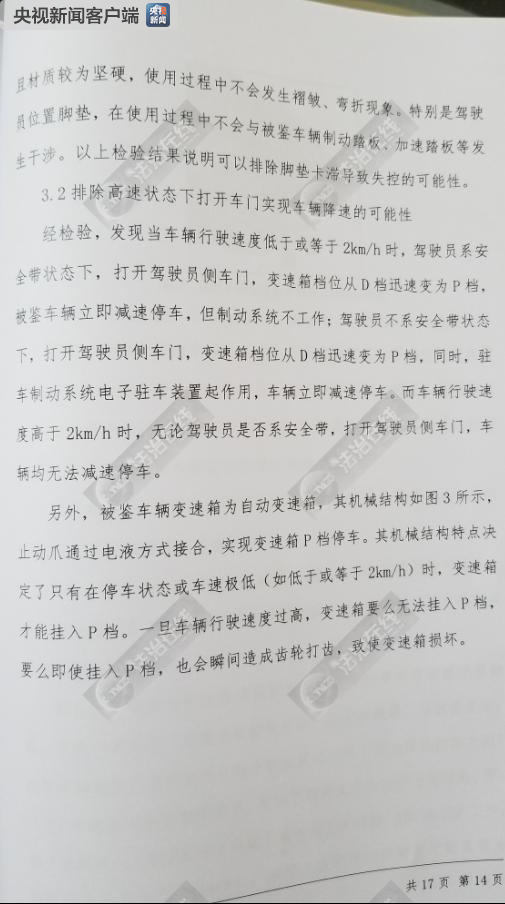 央视新闻客户端
央视
新闻
且材质较为坚硬，使用过程中不会发生褶皱、弯折现象。特别是驾驶
员位置脚垫，在使用过程中不会与被鉴车辆制动踏板、加速踏板等发
生干涉。以上检验结果说明可以排除脚垫卡滞导致失控的可能性。
3.2 排除高速状态下打开车门实现车辆降速的可能性
经检验，发现当车辆行驶速度低于或等于 2km/h 时，驾驶员系安
全带状态下，打开驾驶员侧车门，变速箱档位从 D 档迅速变为 P 档，
被鉴车辆立即减速停车，但制动系统不工作；驾驶员不系安全带状态
下，打开驾驶员侧车门，变速箱档位从 D 档迅速变为 P 档，同时，驻
车制动系统电子驻车装置起作用，车辆立即减速停车。而车辆行驶速
度高于 2km/h 时，无论驾驶员是否系安全带，打开驾驶员侧车门，车
辆均无法减速停车。
另外，被鉴车辆变速箱为自动变速箱，其机械结构如图 3 所示，
止动爪通过电液方式接合，实现变速箱 P 档停车。其机械结构特点决
定了只有在停车状态或车速极低（如低于或等于 2km/h）时，变速箱
才能挂入 P 档。一旦车辆行驶速度过高，变速箱要么无法挂入 P 档，
要么即使挂入 P 档，也会瞬间造成齿轮打齿，致使变速箱损坏。
法治在线
法治在线
法治在线
法治在线
法治在线
法治在线
共 17 页 第 14 页